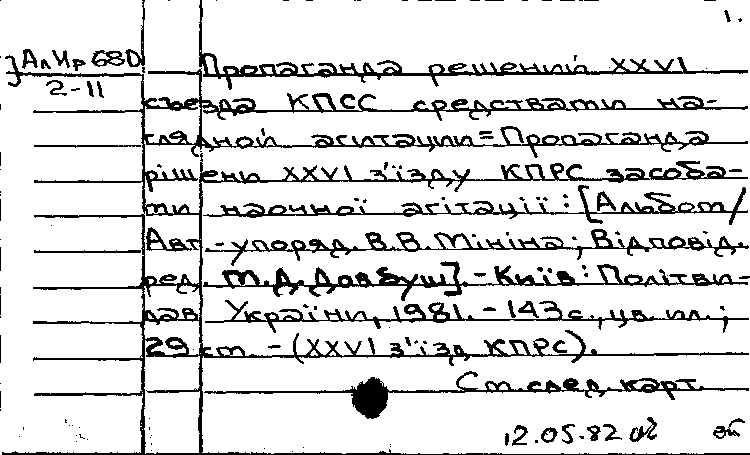 1.
АлИр680 Пропаганда решений XXVI
2-11
съезда КПСС средствами на-
глядной агитации=Пропаганда
рішень XXVI з'їзду КПРС засоба-
ми наочної агітації: [Альбом/
Авт.-упоряд. В.В. Мініна; Відповід.
ред. М.Д. Довбуш]. - Київ: Політви-
дав України, 1981. - 143 с., цв. ил.;
29 см. - (XXVI з'їзд КПРС).
См. след. карт.
12.05.82